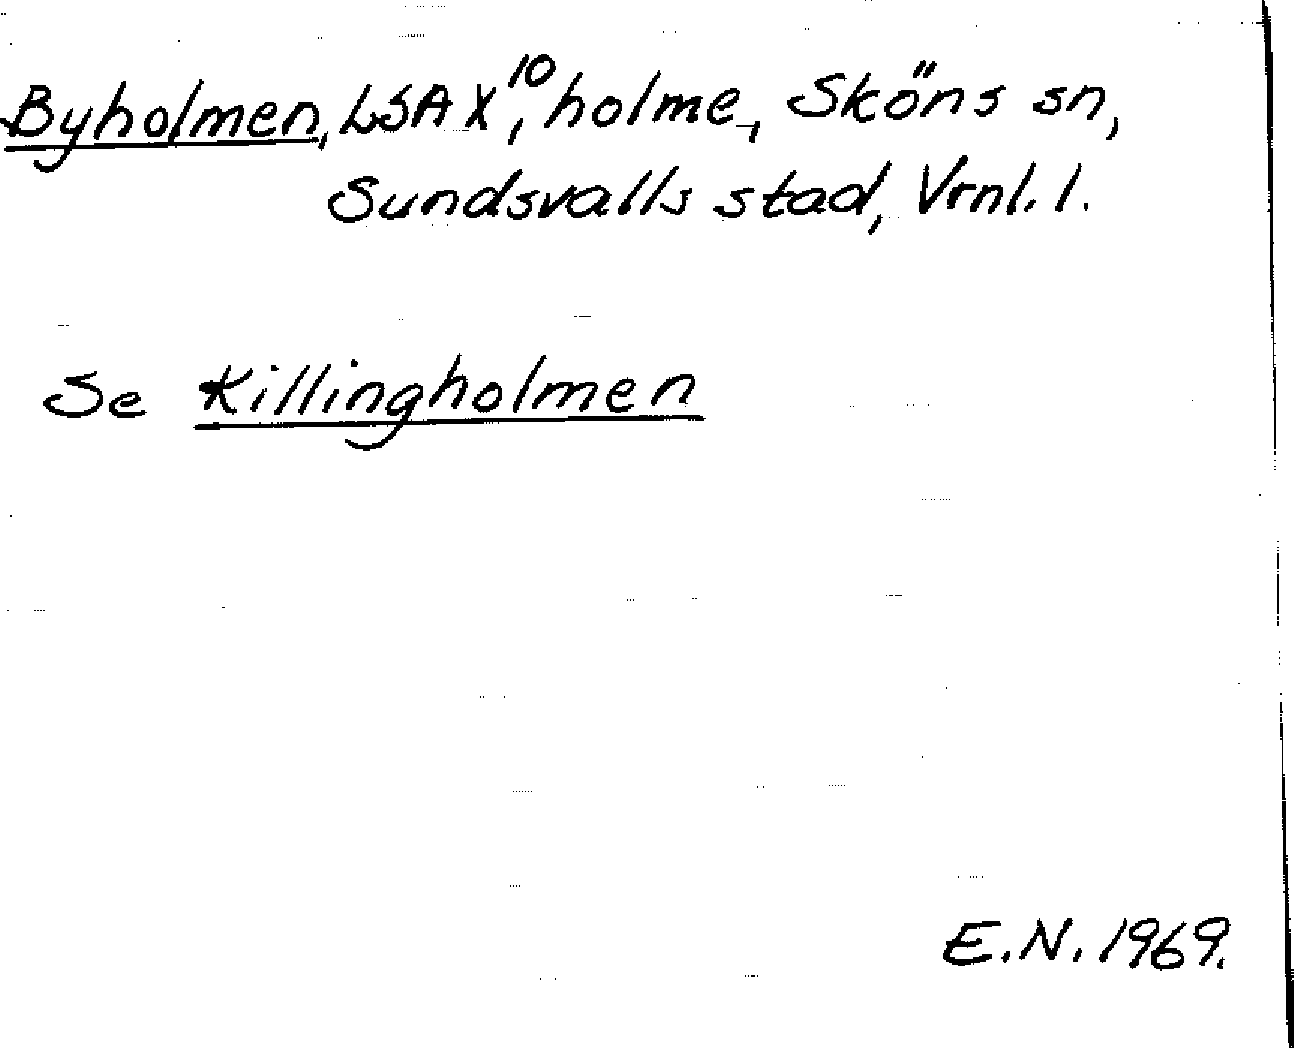 Byholmen, LSA X¹⁰, holme, Sköns sn,
Sundsvalls stad, Vrnl. l.
Se Killingholmen
E.N. 1969.